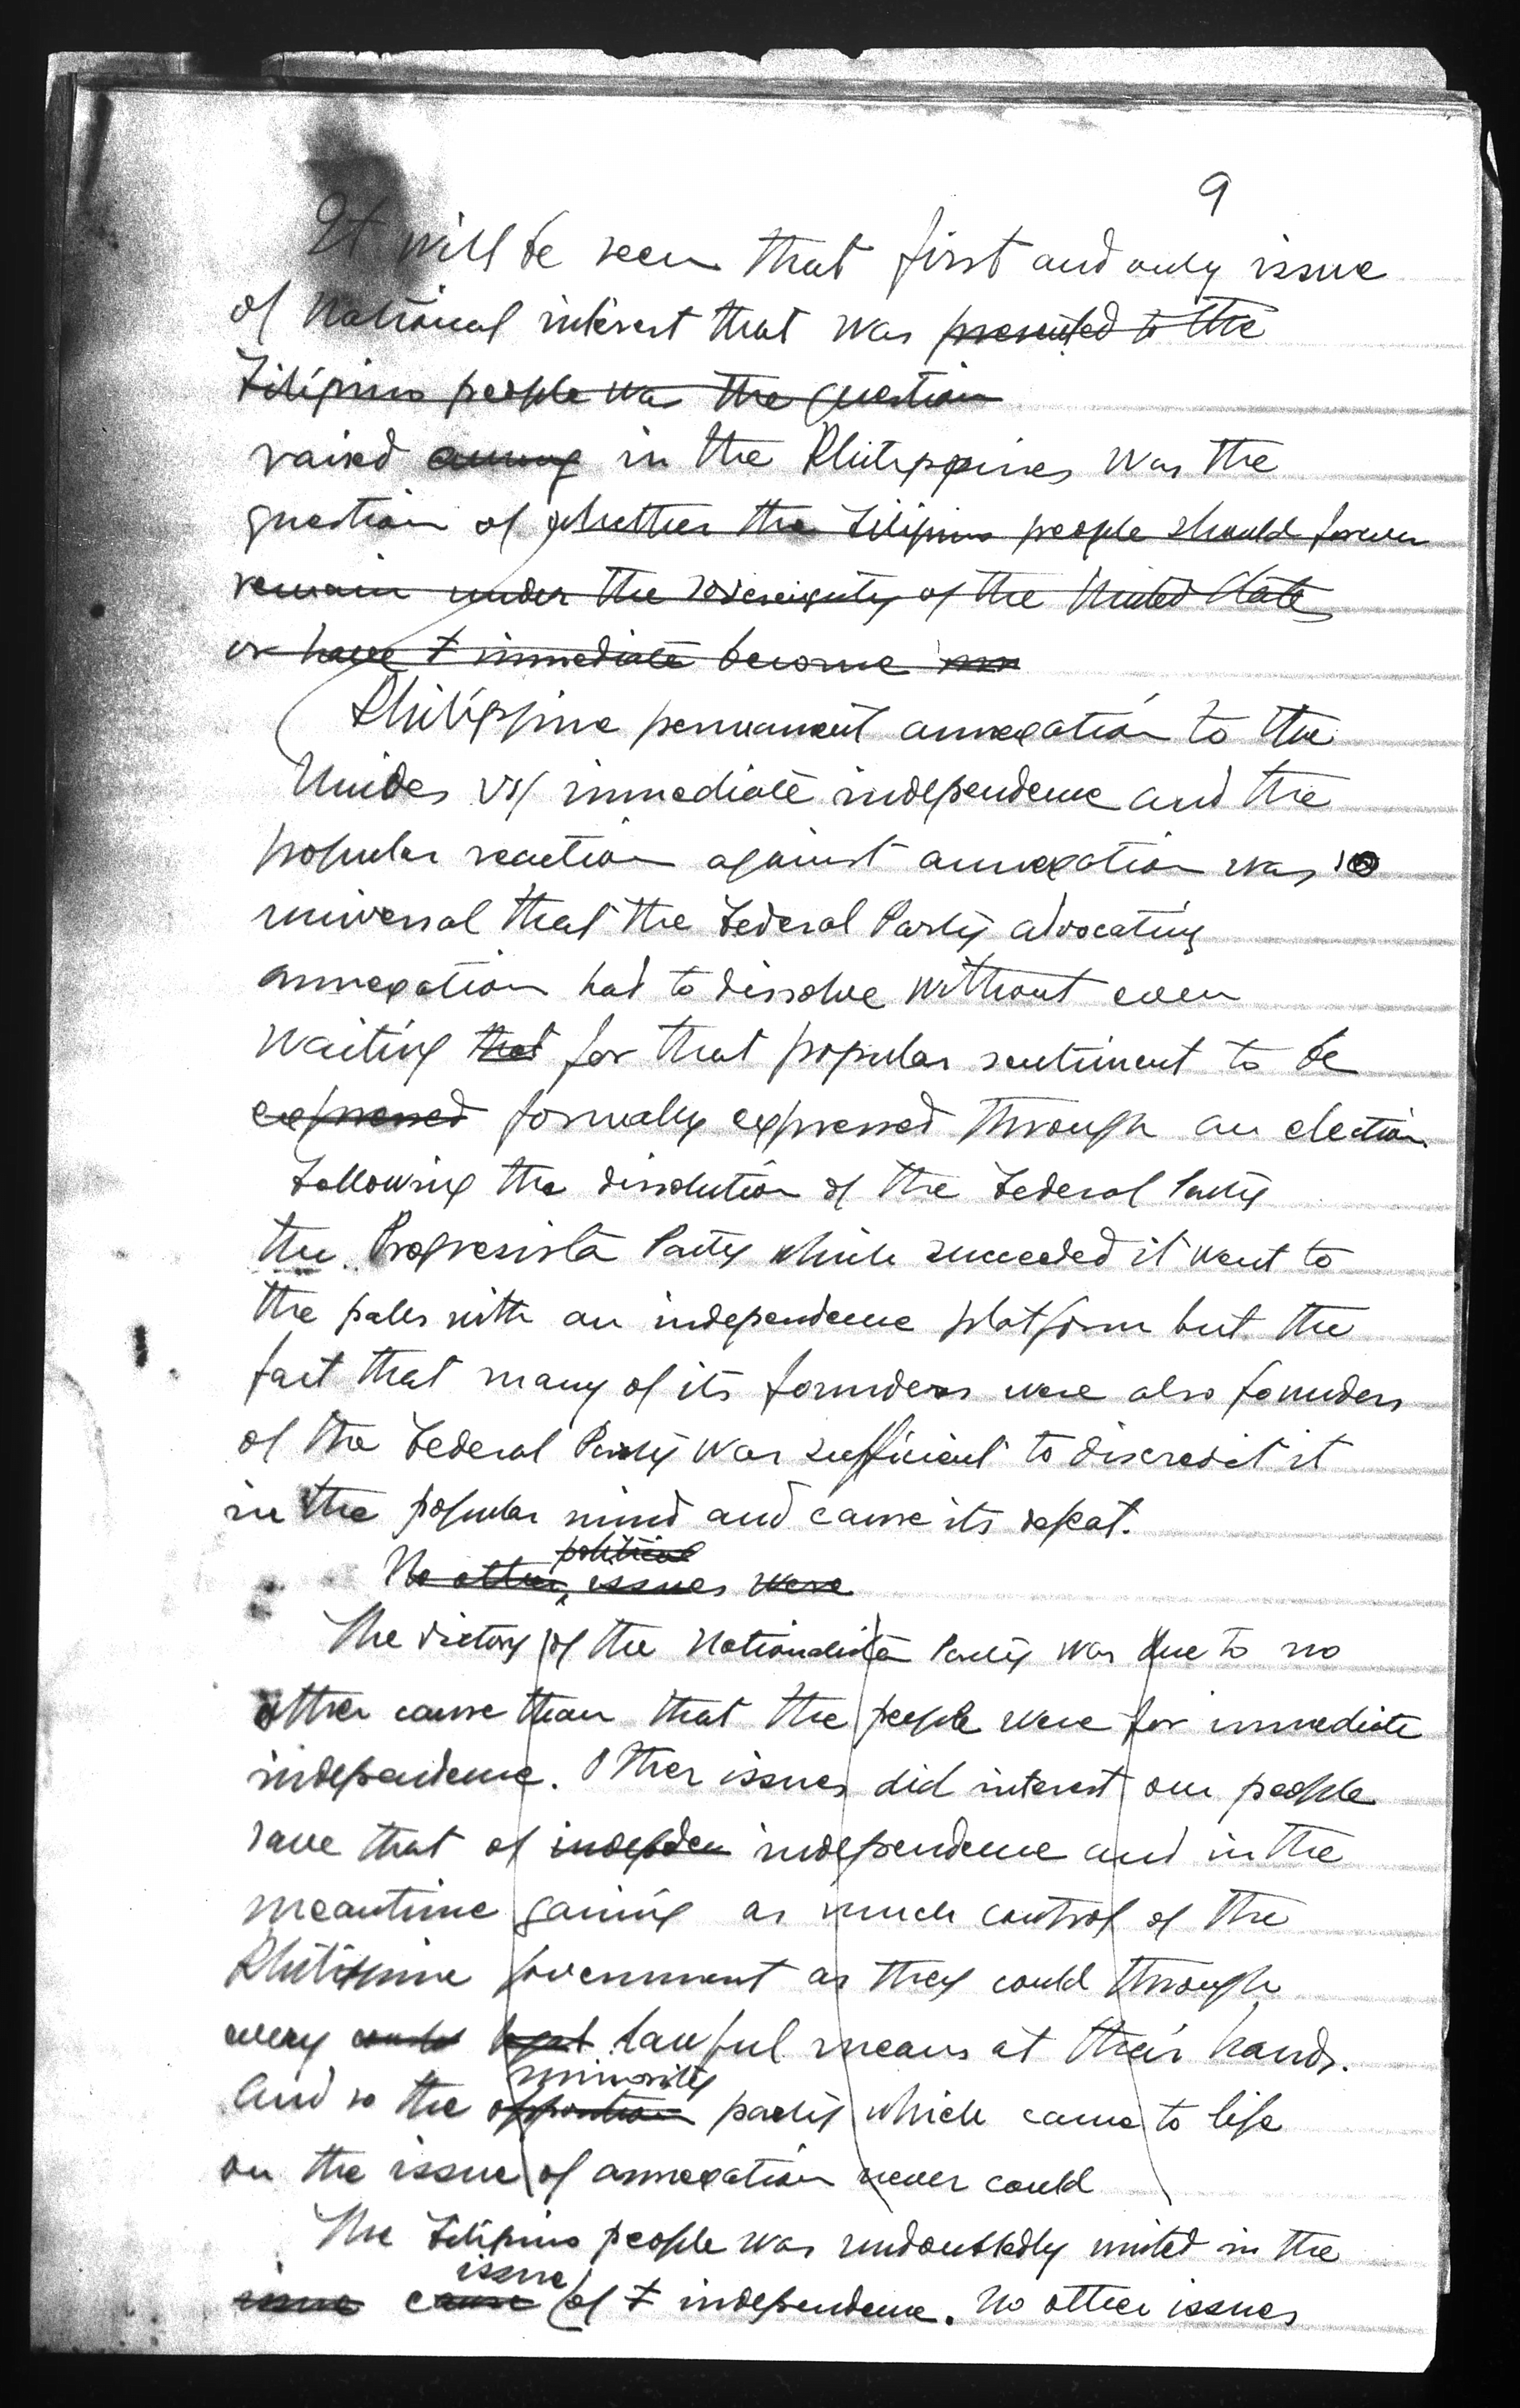 9
It will be seen that first and only issue
of National interest that was presented to the
Filipino people was the question
raised among in the Philippines was the
question of whether the Filipino people should forever
remain under the sovereignty of the United States
or have immediate become
Philippine permanent annexation to the
Unides vs/ immediate independence and the
popular reaction against annexation was so
universal that the Federal Party advocating
annexation had to dissolve without even
waiting that for that popular sentiment to be
expressed formally expressed through an election.
Following the dissolution of the Federal Party
the Progresista Party which succeeded it went to
the poles with an independence platform but the
fact that many of its founders were also founders
of the Federal Party was sufficient to discredit it
in the popular mind and cause its defeat.
political
No other issues were
The victory of the Nationalista Party was due to no
other cause than that the people were for immediate
independence. Other issues did interest our people
save that of indepden independence and in the
meantime gaining as much control of the
Philippine government as they could through
every legal lawful means at their hands.
minority
And so the opposition party which came to life
on the issue of annexation never could
The Filipino people was undoubtedly united in the
issue
issue cause of independence. No other issues